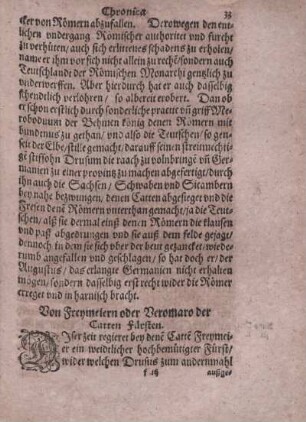 Chronica 33
cker von Römern abzufallen. Derowegen den ent-
lichen vndergang Römischer authoritet vnd furcht
zu verhüten/ auch sich erlittenes schadens zu erholen/
nam er ihm vor sich nicht allein zu rech&/ sondern auch
Teutschlandt der Römischen Monarchi gentzlich zu
vnderwerffen. Aber hierdurch hat er auch dasselbig
schendtlich verlohren/ so albereit erobert. Dan ob
er schon erstlich durch sonderliche practic vñ griff Me-
roboduum der Behmen könig denen Römern mit
bündenus zu gethan/ vnd also die Teutschen/ so gen-
seit der Elbe/ stille gemacht/ darauff seinen streitmechti-
gē stiffsohn Drusum die raach zu volnbringē vñ Ger-
manien zu einer provintz zu machen abgefertigt/ durch
ihn auch die Sachsen/ Schwaben vnd Sicambern
bey nahe bezwungen/ denen Catten abgesieget vnd die
Fresen denē Römern vnterthan gemacht/ ja die Teut-
schen/ alß sie dermal einß den Römern die klausen
vnd paß abgedrungen vnd sie auß dem felde gejagt/
dennoch in dem sie sich vber der beut gezancket/ wiede-
rumb angefallen vnd geschlagen/ so hat doch er/ der
Augustus/ das erlangte Germanien nicht erhalten
mögen/ sondern dasselbig erst recht wider die Römer
erreget vnd in harnisch bracht.
Von Freymeiern oder Veromaro der
Catten Fürsten.
DIser zeit regieret bey denē Cattē Freymei-
er ein weidtlicher hochbemütigter Fürst/
wider welchen Drusus zum andernmahl
außge-